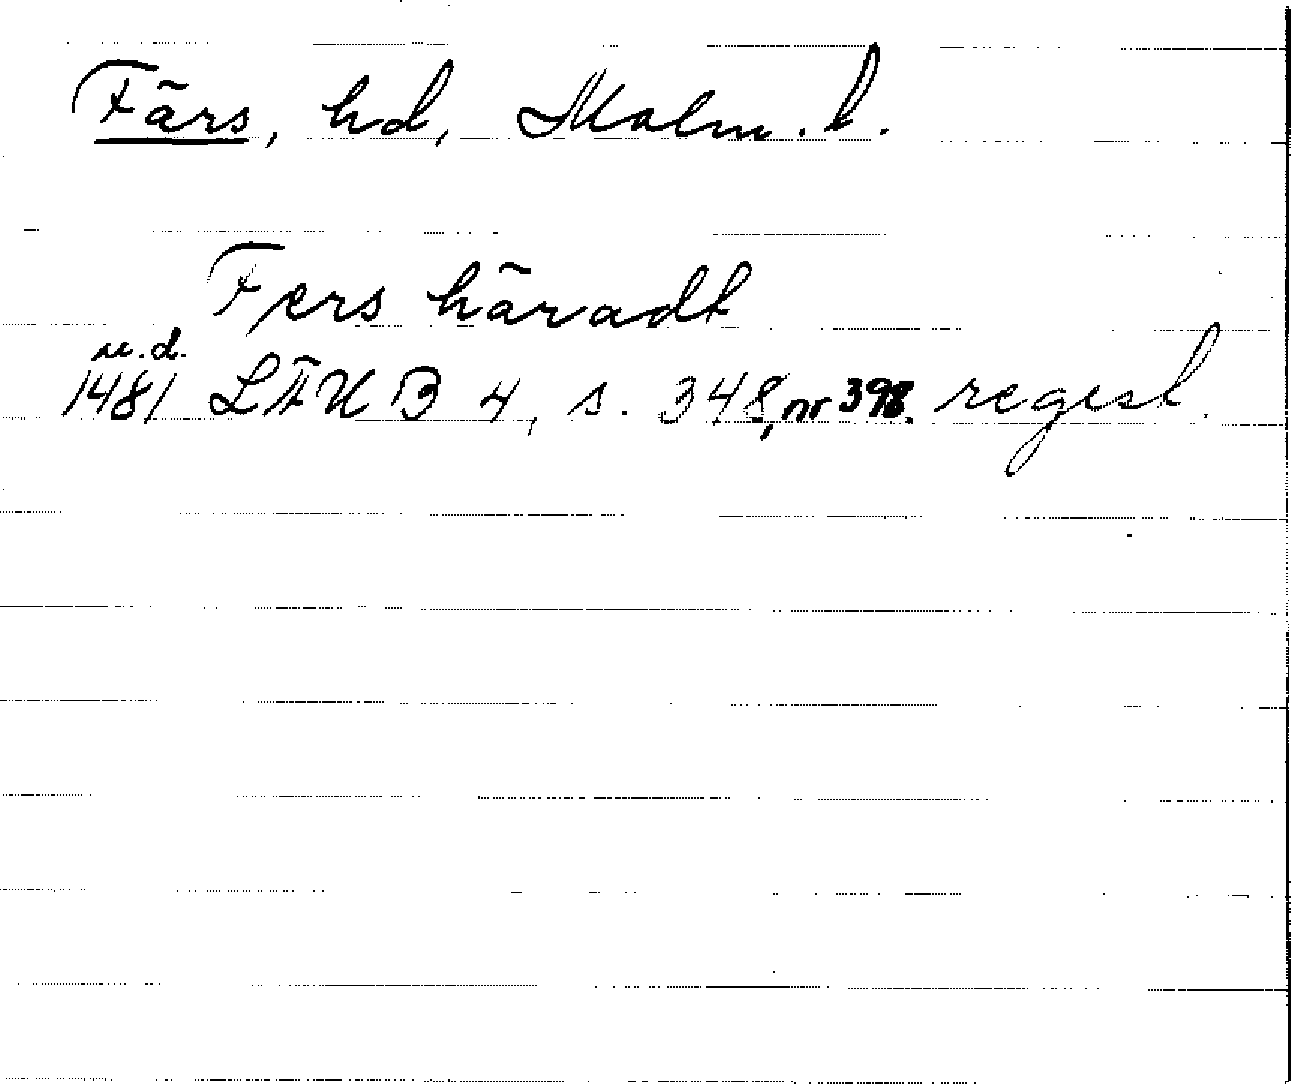 Färs, hd, Malm. l.
Fers häradt
u.d.
1481 LÄUB 4, s. 348, nr 398. regest.